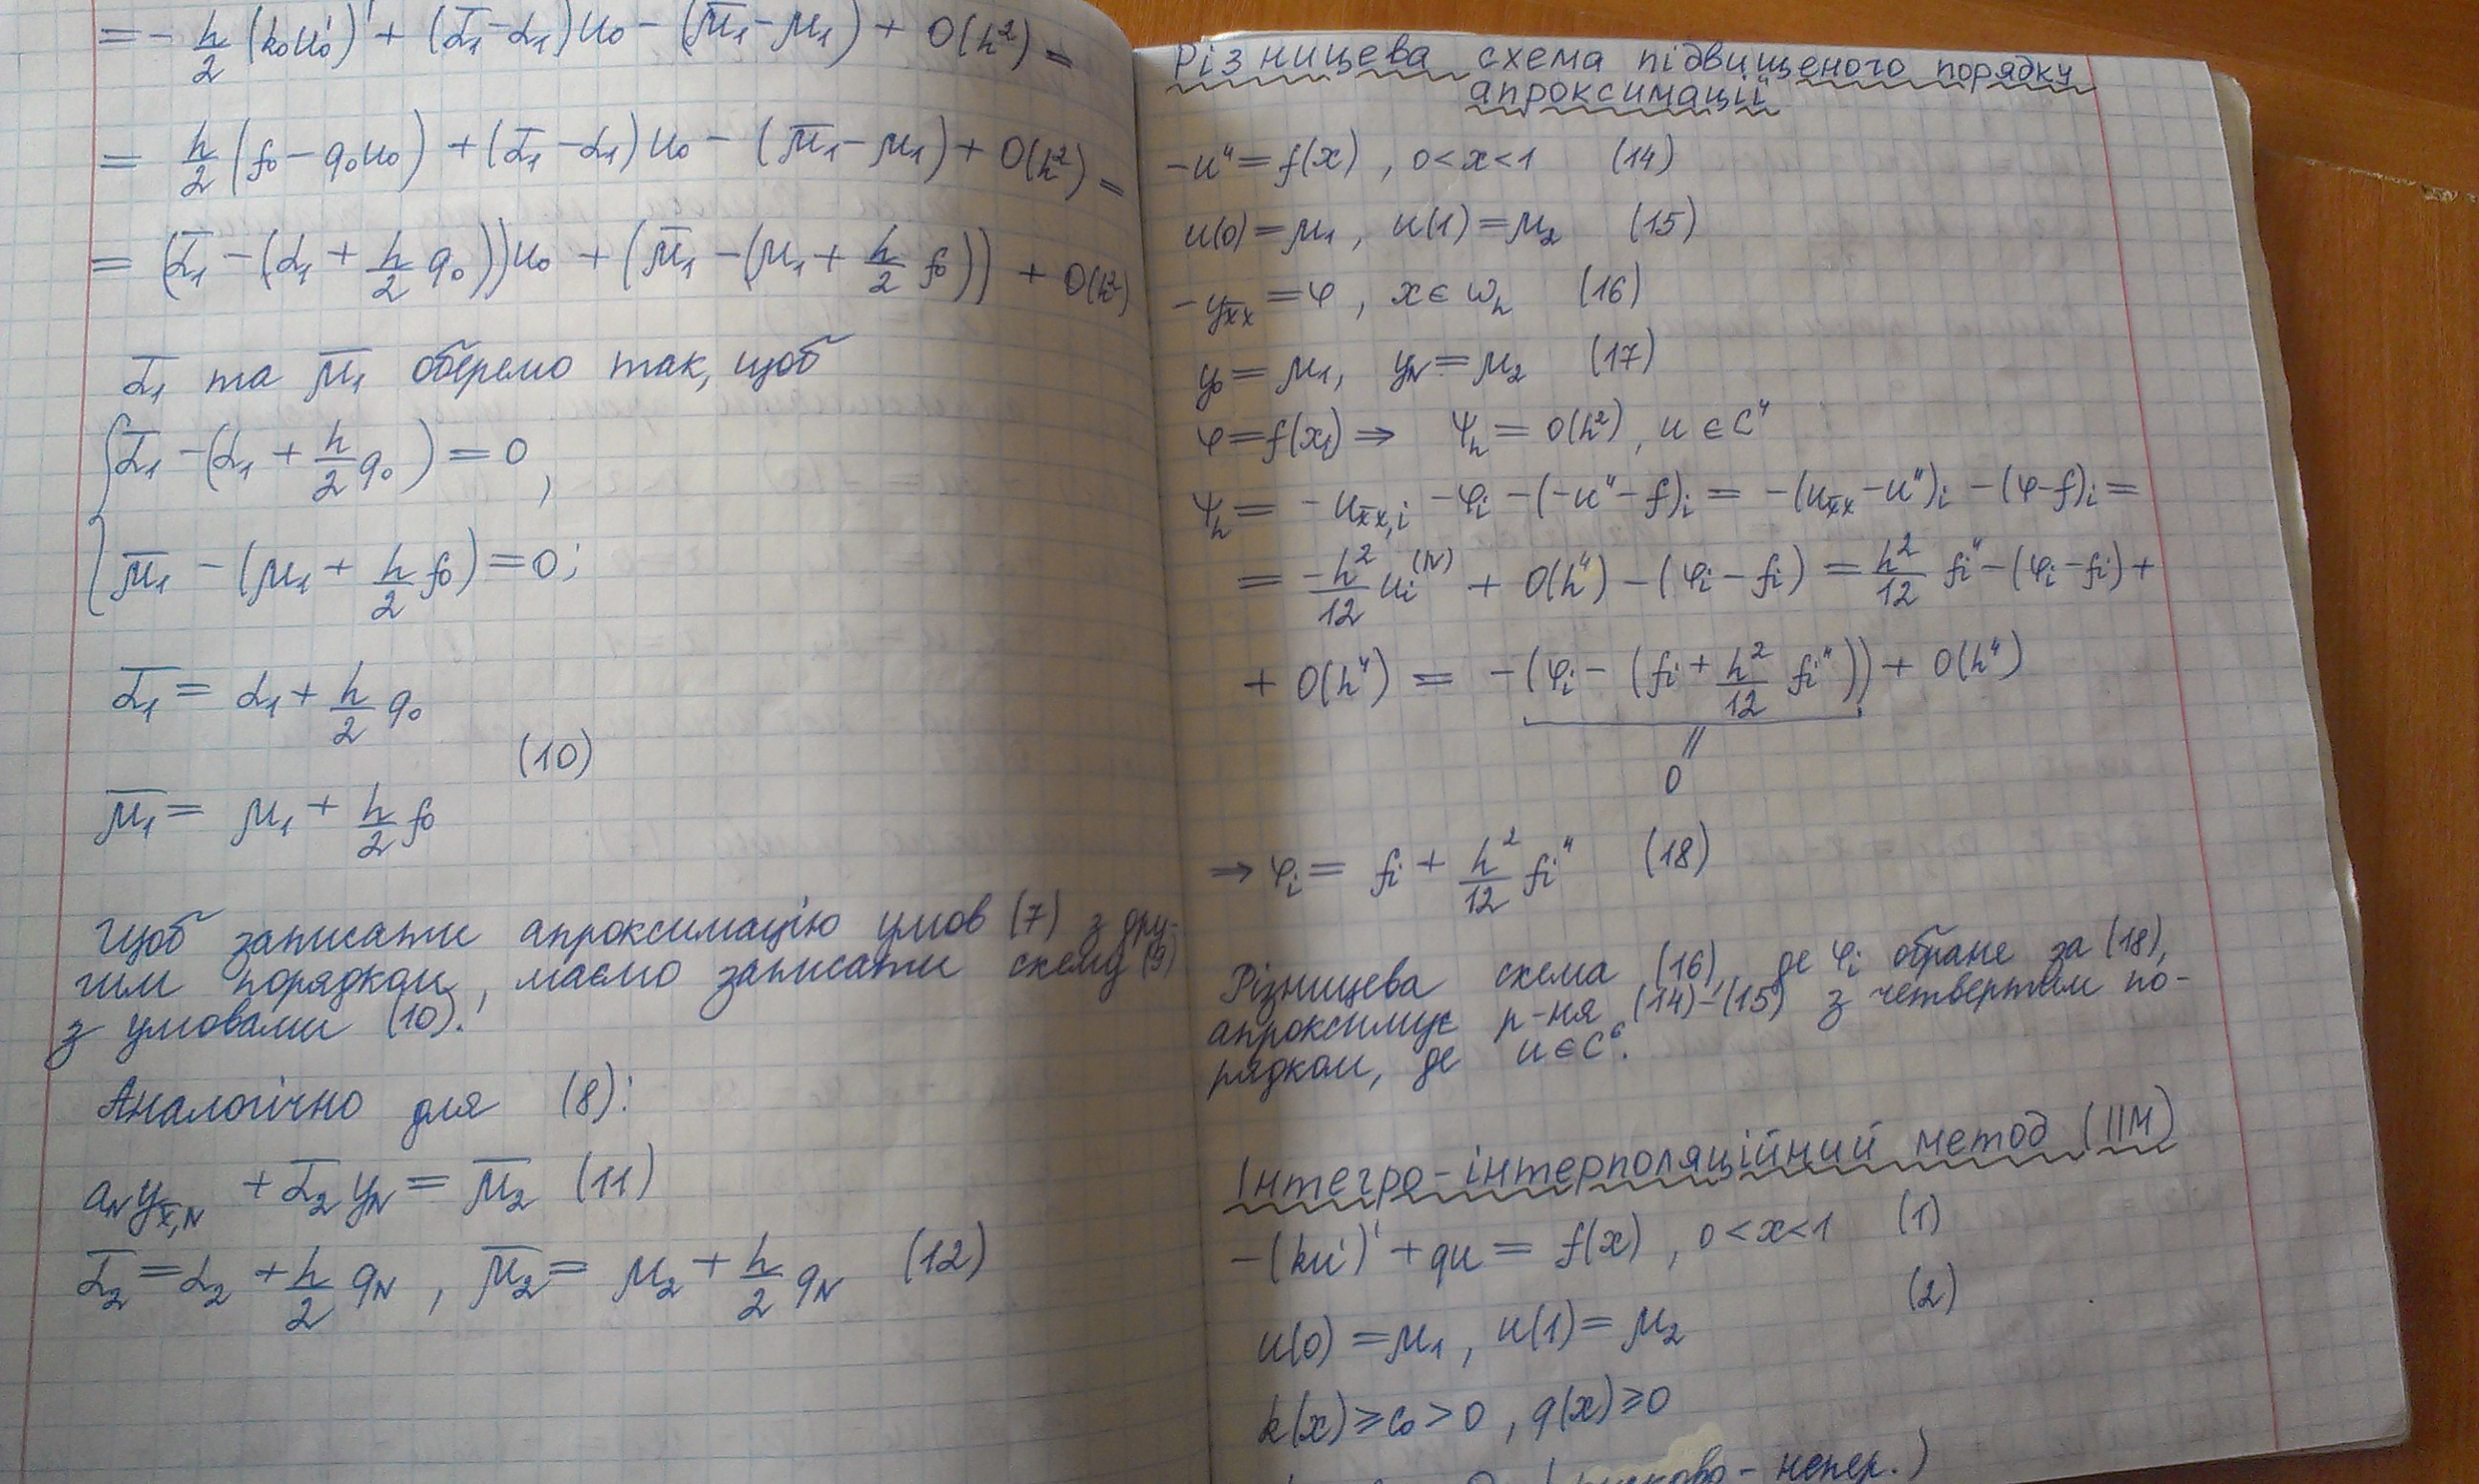 = - h/2 (k₀u₀')' + (α̅₁ - α₁)u₀ - (μ̅₁ - μ₁) + O(h²) =
= h/2 (f₀ - q₀u₀) + (α̅₁ - α₁)u₀ - (μ̅₁ - μ₁) + O(h²) =
= (α̅₁ - (α₁ + h/2 q₀))u₀ + (μ̅₁ - (μ₁ + h/2 f₀)) + O(h²)
α̅₁ та μ̅₁ оберемо так, щоб
{ α̅₁ - (α₁ + h/2 q₀) = 0,
μ̅₁ - (μ₁ + h/2 f₀) = 0;
α̅₁ = α₁ + h/2 q₀
(10)
μ̅₁ = μ₁ + h/2 f₀
Щоб записати апроксимацію умов (7) з дру-
гим порядком, маємо записати схему (9)
з умовами (10).
Аналогічно для (8):
a_N y_x̅,N + α̅₂ y_N = μ̅₂ (11)
α̅₂ = α₂ + h/2 q_N , μ̅₂ = μ₂ + h/2 q_N (12)
Різницева схема підвищеного порядку
апроксимації
-u'' = f(x) , 0 < x < 1 (14)
u(0) = μ₁ , u(1) = μ₂ (15)
-y_x̅x = φ , x ∈ ω_h (16)
y₀ = μ₁, y_N = μ₂ (17)
φ = f(xᵢ) ⇒ ψ_h = O(h²), u ∈ C⁴
ψ_h = -u_x̅x,i - φᵢ - (-u'' - f)ᵢ = -(u_x̅x - u'')ᵢ - (φ - f)ᵢ =
= -h²/12 uᵢ^(IV) + O(h⁴) - (φᵢ - fᵢ) = h²/12 fᵢ'' - (φᵢ - fᵢ) +
+ O(h⁴) = -(φᵢ - (fᵢ + h²/12 fᵢ'')) + O(h⁴)
||
0
⇒ φᵢ = fᵢ + h²/12 fᵢ'' (18)
Різницева схема (16), де φᵢ обране за (18),
апроксимує р-ня (14)-(15) з четвертим по-
рядком, де u ∈ C⁶.
Інтегро-інтерполяційний метод (ІІМ)
-(ku')' + qu = f(x) , 0 < x < 1 (1)
u(0) = μ₁ , u(1) = μ₂ (2)
k(x) ≥ c₀ > 0 , q(x) ≥ 0
кусково-непер.)